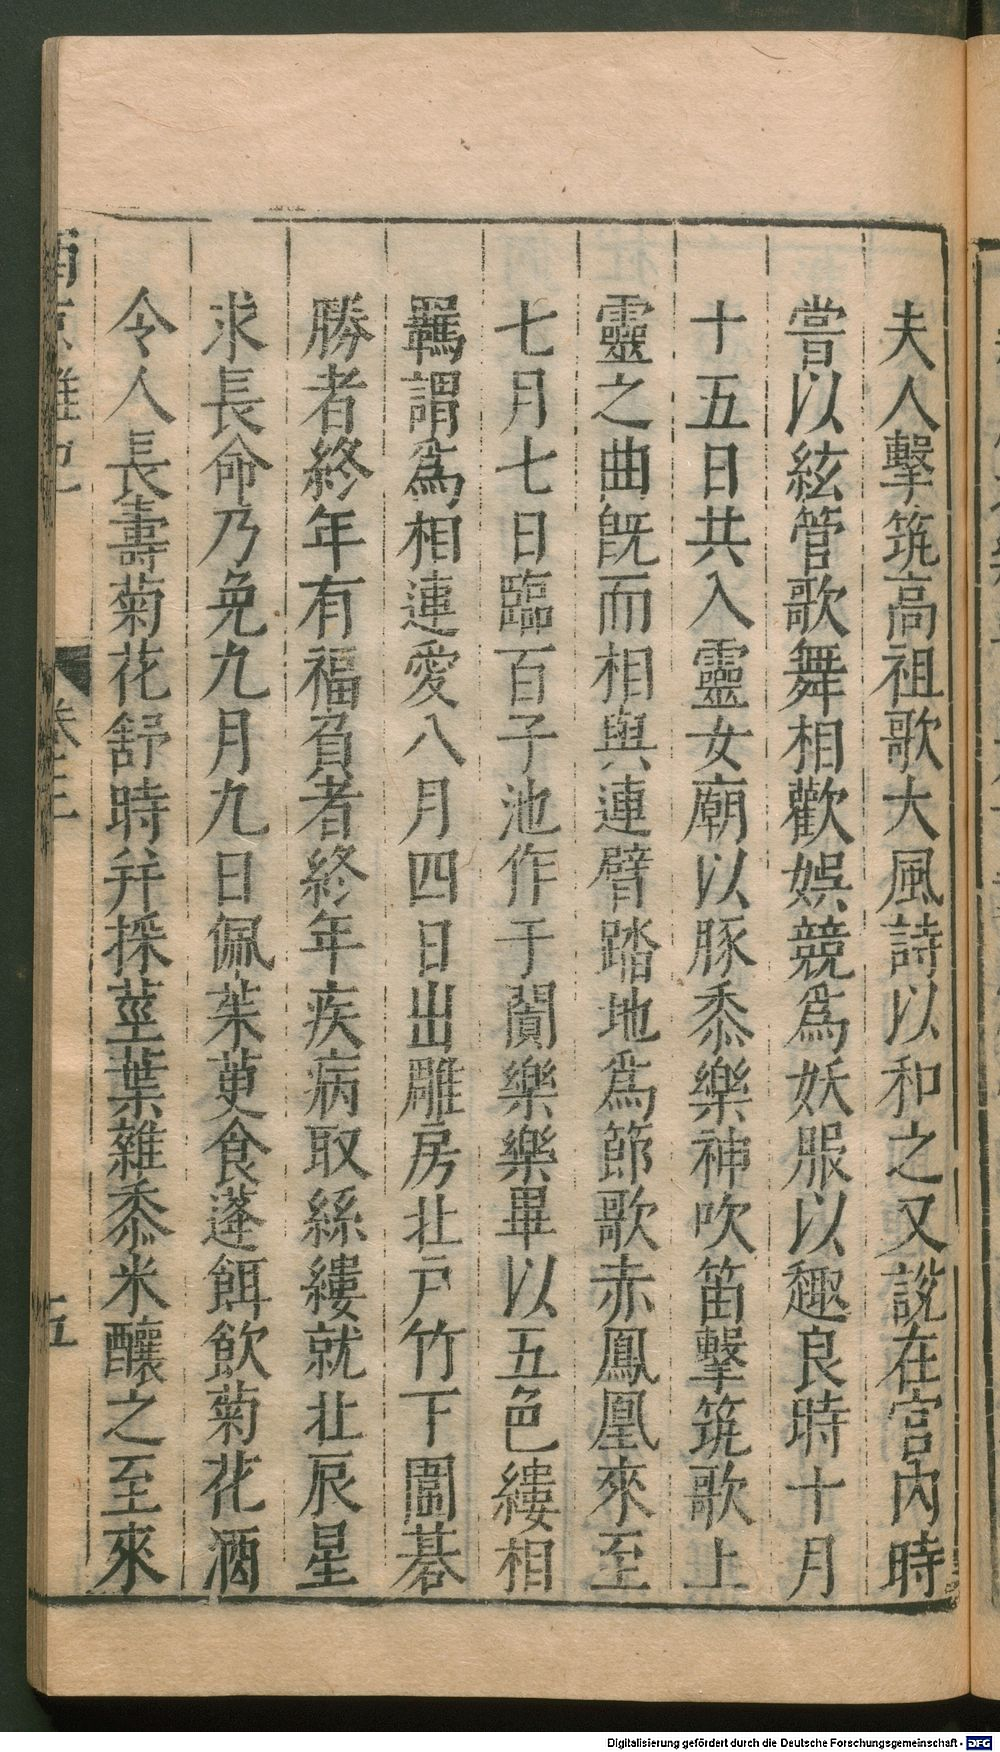 夫人擊筑高祖歌大風詩以和之又說在宮內時
嘗以絃管歌舞相歡娛競爲妖服以趣良時十月
十五日共入靈女廟以豚黍樂神吹笛擊筑歌上
靈之曲旣而相與連臂踏地爲節歌赤鳳凰來至
七月七日臨百子池作于闐樂樂畢以五色縷相
羈謂爲相連愛八月四日出雕房北戶竹下圍棊
勝者終年有福負者終年疾病取絲縷就北辰星
求長命乃免九月九日佩茱萸食蓬餌飮菊花酒
令人長壽菊花舒時幷採莖葉雜黍米釀之至來
卷三
五
Digitalisierung gefördert durch die Deutsche Forschungsgemeinschaft - DFG